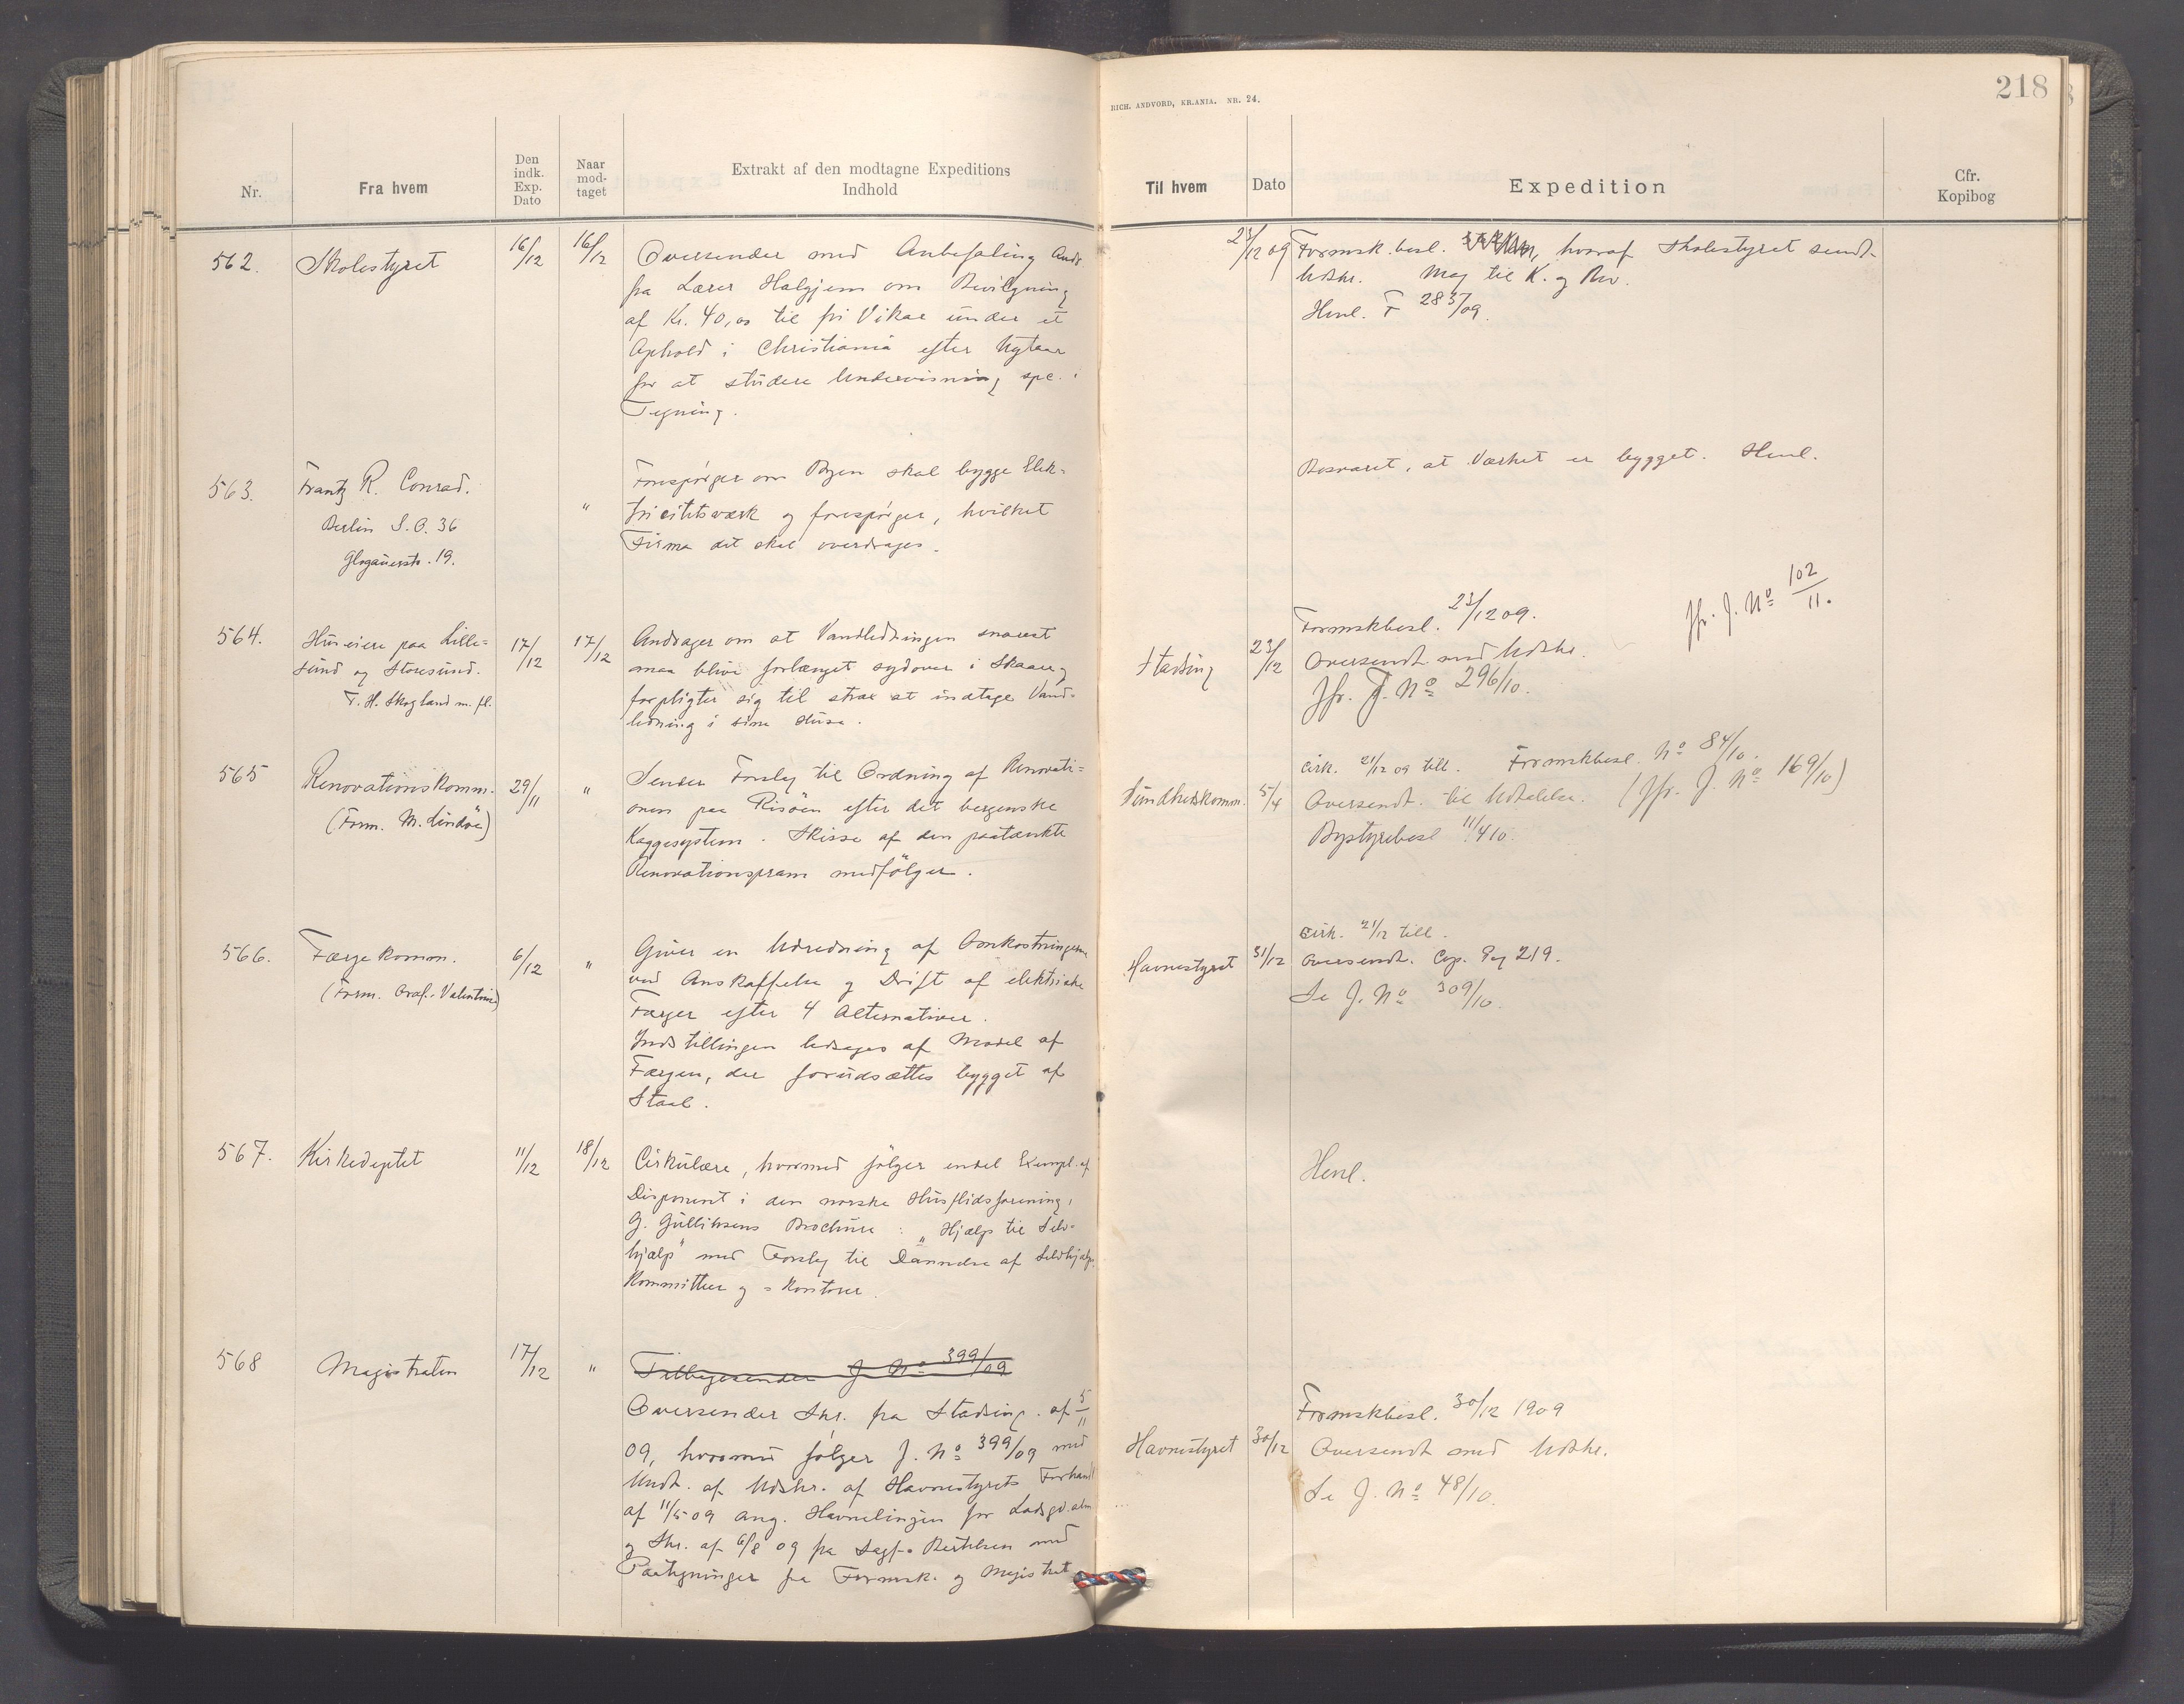 218
RICH. ANDVORD, KR.ANIA. NR. 24.
Nr.
Fra hvem
Den indk. Exp. Dato
Naar mod- taget
Extrakt af den modtagne Expeditions
Indhold
Til hvem
Dato
Expedition
Cfr.
Kopibog
562. Skolestyret 16/12 16/12 Oversender med Anbefaling Ands
fra Lærer Halgjem om Bevilgning
af Kr. 40,00 til fri Vikar under et
Ophold i Christiania efter Nytaar
for at studere Undervisning spc. i
Tegning.
23/12 09 Formsk.besl. hvoraf Skolestyret sendt
Udskr. Mag til K. og Rev.
Henl. F 283/09.
563. Frantz R. Conrad.
Berlin S.O. 36
Glogauerstr. 19.
" Forespørger om Byen skal bygge Elek-
tricitetsværk og forespørger, hvilket
Firma det skal overdrages.
Besvaret, at Værket er bygget. Henl.
564. Huseiere paa Lille-
sund og Storesund.
T. H. Skogland m. fl.
17/12 17/12 Andrager om at Vandledningen snarest
maa blive forlænget sydover i Skaare og
forpligter sig til strax at indtage Vand-
ledning i sine Huse.
Formskbesl. 23/12 09.
Jfr. J. No 102/11.
Stadsing 23/12 Oversendt med Udskr.
Jfr. J. No 296/10.
565 Renovationskomm.
(Form. M. Lindøe)
29/11 " Sender Forslag til Ordning af Renovati-
onen paa Risøen efter det bergenske
Kaggesystem. Skisse af den paatænkte
Renovationspram medfølger.
Cirk. 21/12 09 till. Formskbesl. No 84/10.
Sundhetskomm. 5/4 Oversendt til Udtalelse. (Jfr. J. No 169/10)
Bystyrebesl 11/4 10.
566. Færgekomm.
(Form. Oraf. Valentine)
6/12 " Giver en Udredning af Omkostningerne
ved Anskaffelse og Drift af elektriske
Færger efter 4 Alternativer.
Indstillingen ledsages af Model af
Færgen, der forudsættes bygget af
Staal.
Cirk. 21/12 till.
Havnestyret 31/12 Oversendt. Cop. Pag 219.
Se J. No 309/10.
567. Kirkedeptet 11/12 18/12 Cirkulære, hvormed følger endel Exempl. af
Disponent i den norske Husflidsforening,
G. Gulliksens Brochure: „Hjælp til Selv-
hjælp" med Forslag til Dannelse af Selvhjælps
Kommitteer og = Kontorer.
Henl.
568 Magistraten 17/12 " Tilbagesender J No 399/09
Oversender Skr. fra Stadsing. af 5/11
09, hvormed følger J. No 399/09 med
Undt. af Udskr. af Havnestyrets Forhandl
af 11/5 09 ang. Havnelinjen for
og Skr. af 6/8 09 fra Sagf. Bertelsen med
Paategninger fra Formsk. og Magistrat
Formskbesl. 30/12 1909
Havnestyret 30/12 Oversendt med Udskr.
Se J. No 48/10.